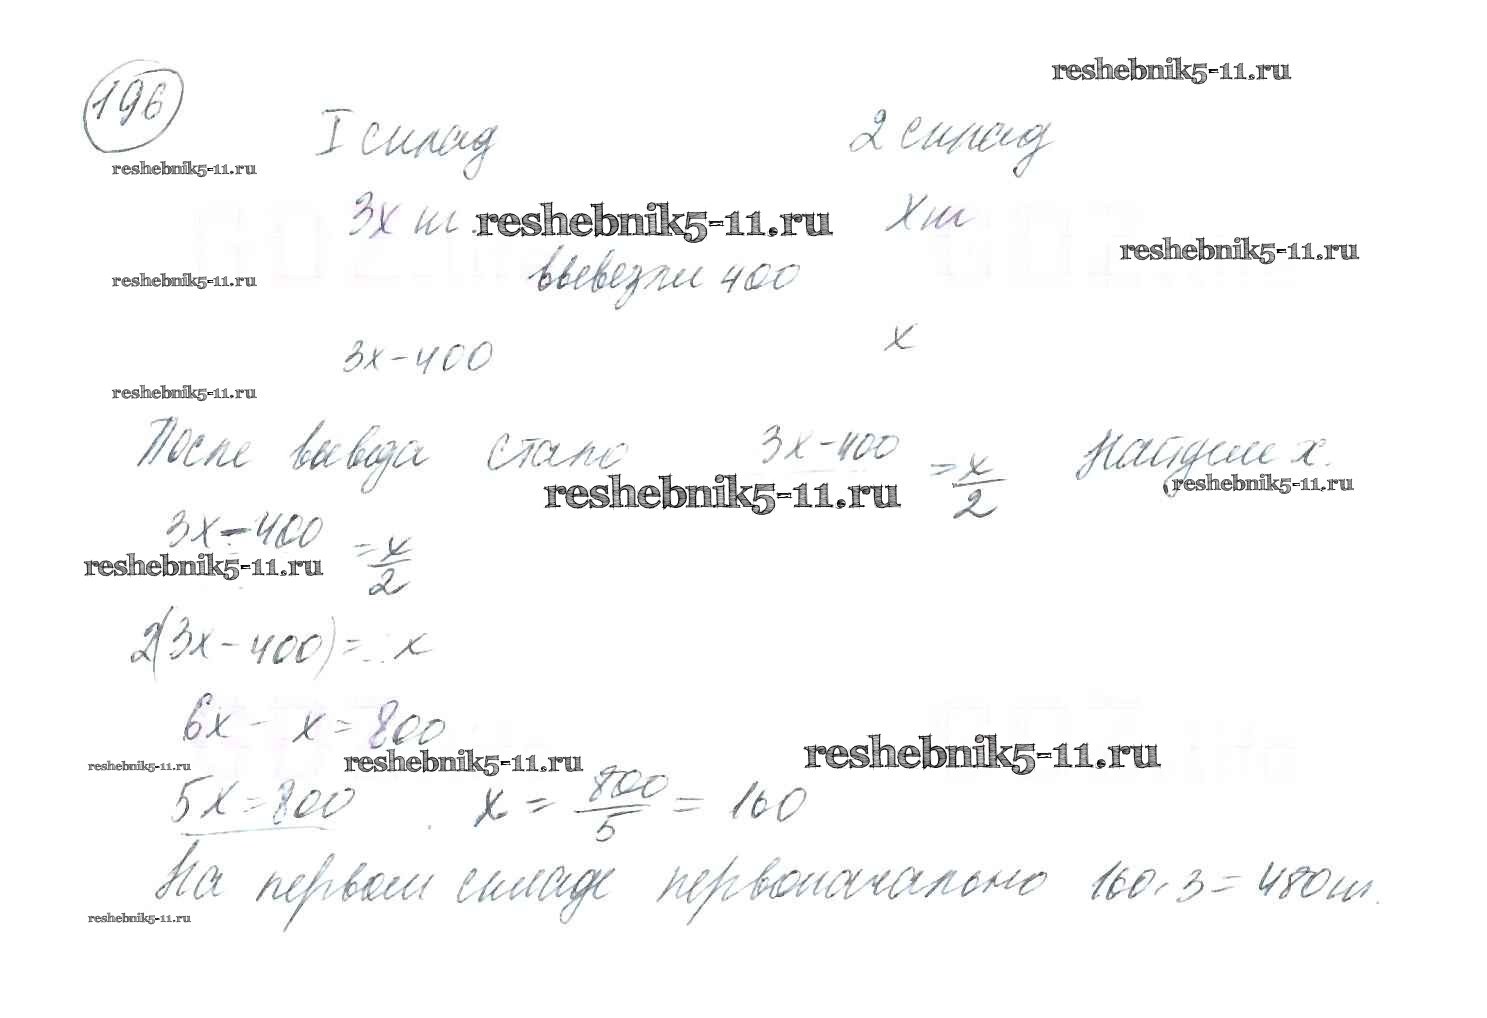 reshebnik5-11.ru
196
I склад 2 склад
reshebnik5-11.ru
3x ш. reshebnik5-11.ru x ш
reshebnik5-11.ru
reshebnik5-11.ru вывезли 400
3x-400 x
reshebnik5-11.ru
После вывода стало 3x-400 = x/2 Найдем x.
reshebnik5-11.ru reshebnik5-11.ru
3x-400 = x/2
reshebnik5-11.ru
2(3x-400) = x
6x - x = 800
reshebnik5-11.ru reshebnik5-11.ru reshebnik5-11.ru
5x = 800 x = 800/5 = 160
На первом складе первоначально 160·3 = 480 ш.
reshebnik5-11.ru